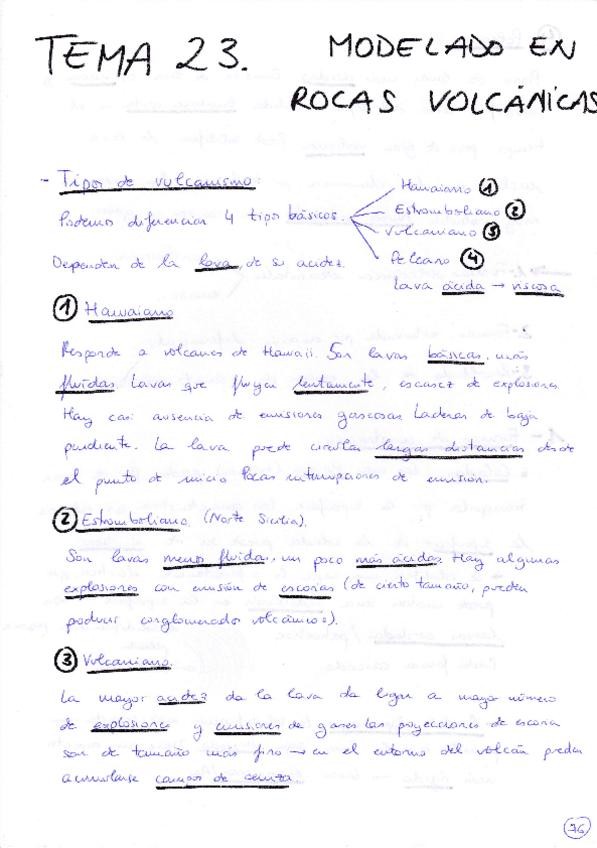 TEMA 23. MODELADO EN
ROCAS VOLCÁNICAS
- Tipos de vulcanismo:
Podemos diferenciar 4 tipos básicos.
Hawaiano ①
Estromboliano ②
Vulcaniano ③
Peleano ④
Dependen de la lava, de su acidez.
lava ácida → viscosa
① Hawaiano
Responde a volcanes de Hawaii. Son lavas básicas, más
fluidas. Lavas que fluyen lentamente, escasez de explosiones.
Hay casi ausencia de emisiones gaseosas. Laderas de baja
pendiente. La lava puede circular largas distancias desde
el punto de inicio. Pocas interrupciones de emisión.
② Estromboliano. (Norte Sicilia).
Son lavas menos fluidas, un poco más ácidas. Hay algunas
explosiones con emisión de escorias (de cierto tamaño, pueden
producir conglomerados volcánicos).
③ Vulcaniano.
La mayor acidez da la lava da lugar a mayor número
de explosiones y emisiones de gases. Las proyecciones de escoria
son de tamaño más fino → en el entorno del volcán pueden
acumularse campos de ceniza.
76